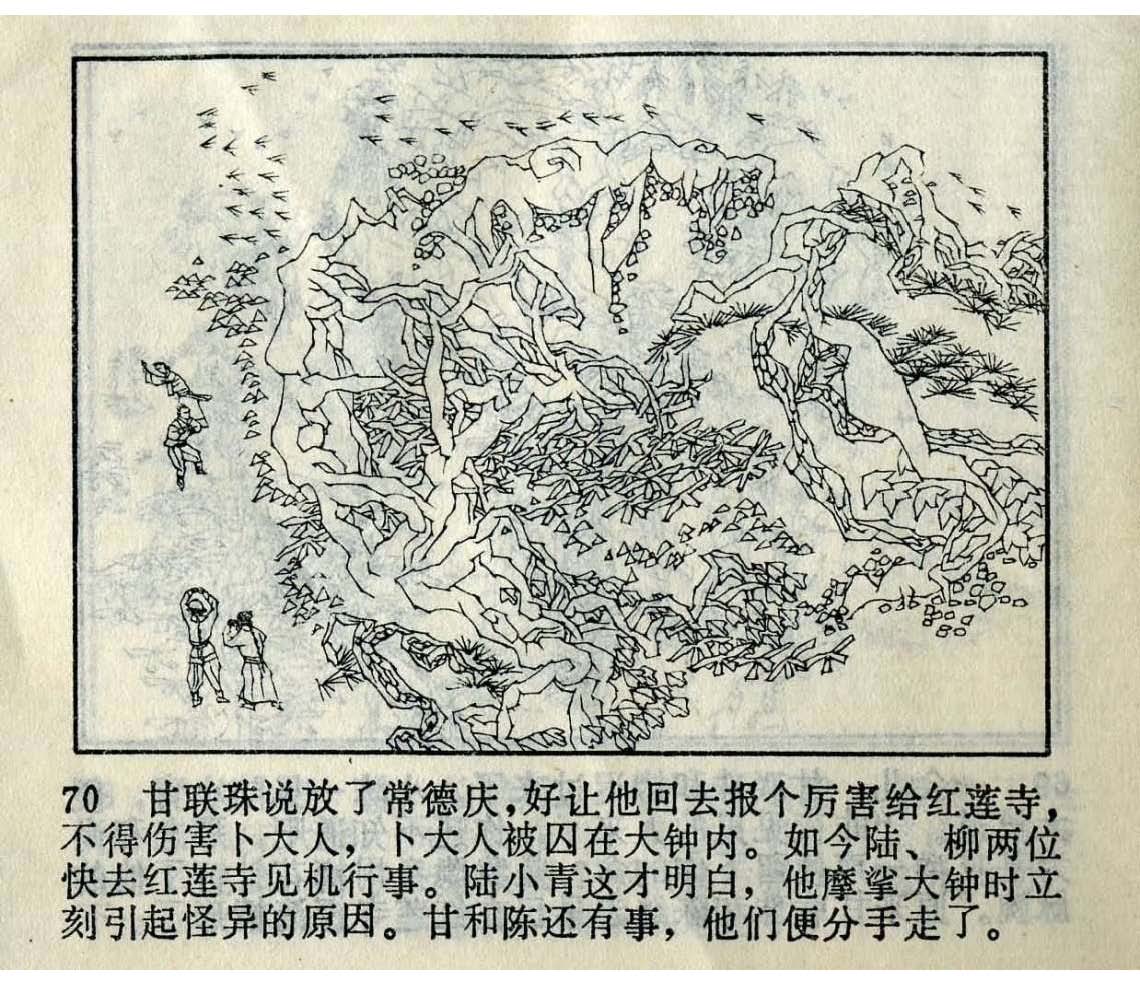 70 甘联珠说放了常德庆，好让他回去报个厉害给红莲寺，
不得伤害卜大人，卜大人被囚在大钟内。如今陆、柳两位
快去红莲寺见机行事。陆小青这才明白，他摩挲大钟时立
刻引起怪异的原因。甘和陈还有事，他们便分手走了。